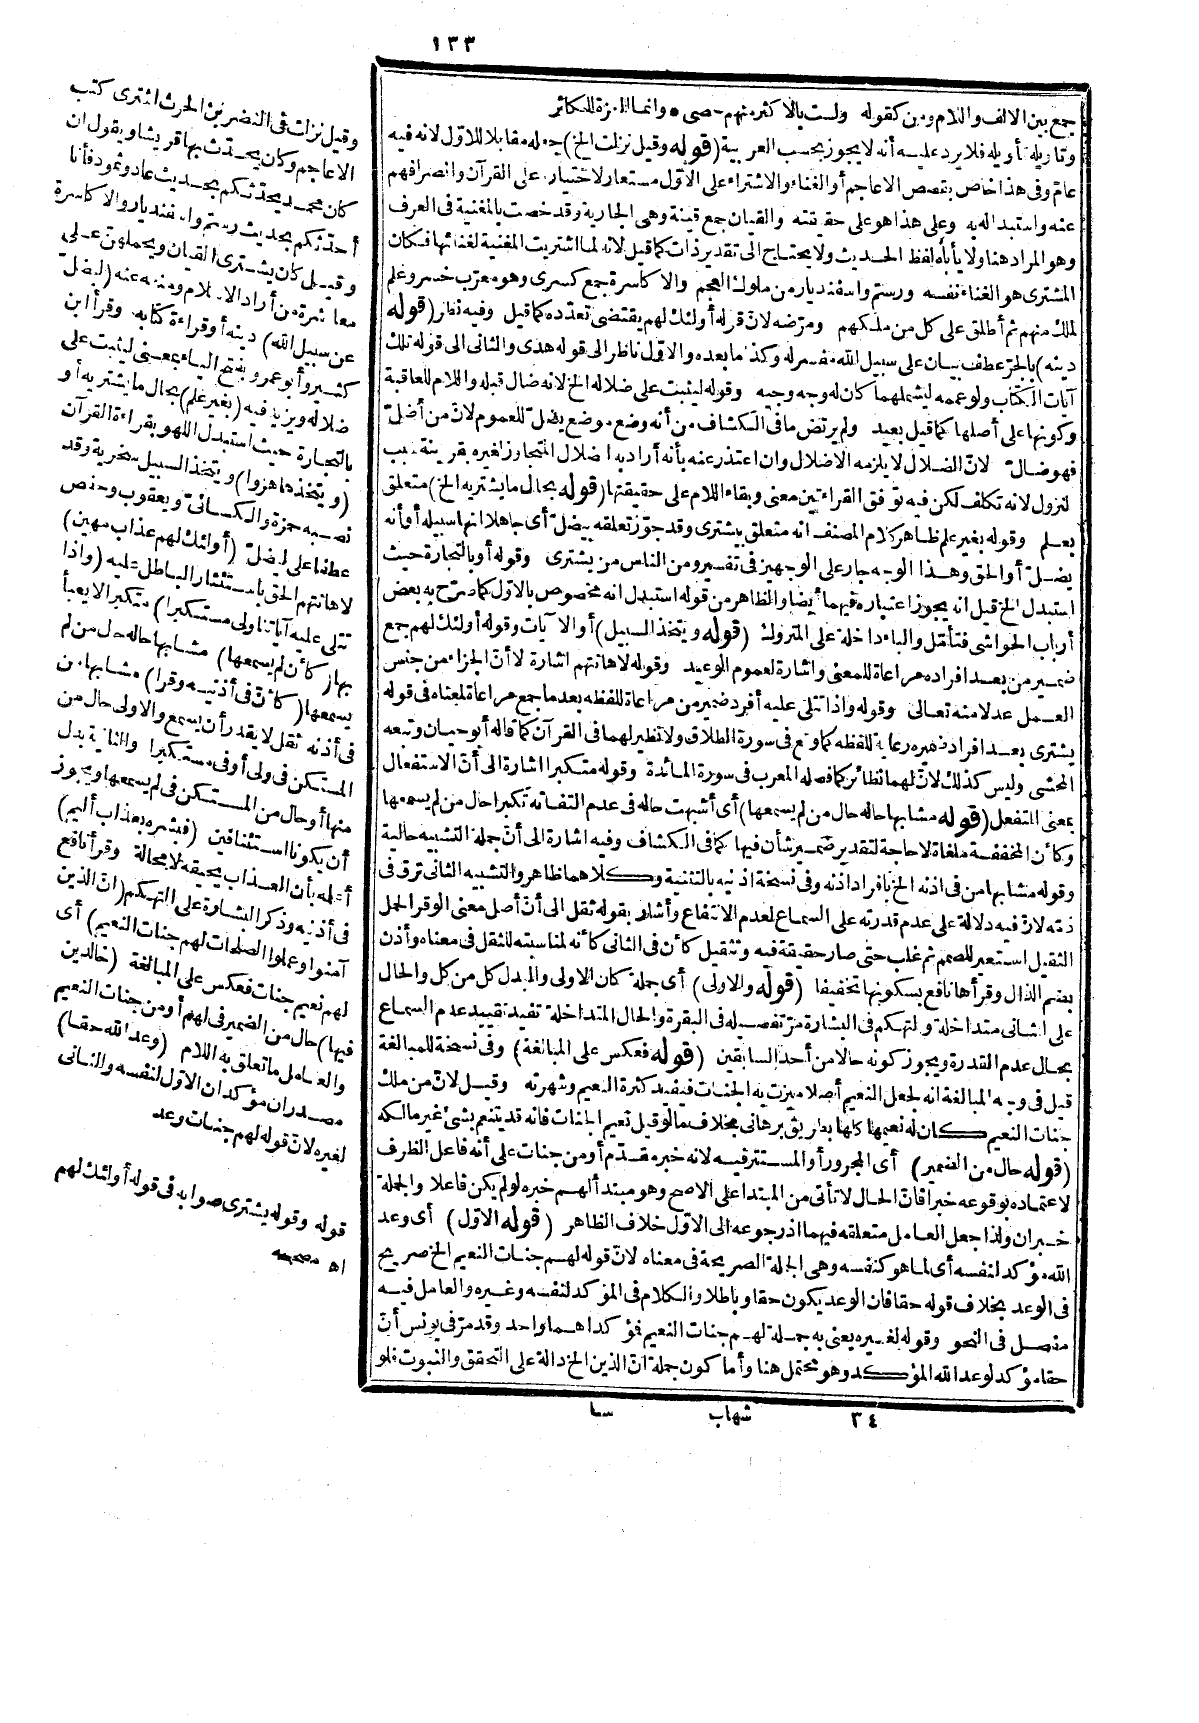 ١٣٣
جمع بين الالف واللام ومن كقوله ولست بالاكثر منهم حصى * وانما العزة للكاثر
وتأويله فلا يرد عليه أنه لا يجوز بحسب العربية (قوله وقيل نزلت الخ) جعله مقابلا للاول لانه فيه
عام وفى هذا خاص بقصص الاعاجم أو الغناء والاشتراء على الاول مستعار لاختياره على القرآن وانصرافهم
عنه واستبداله به وعلى هذا هو على حقيقته والقيان جمع قينة وهى الجارية وقد خصت بالمغنية فى العرف
وهو المراد هنا ولا يأباه لفظ الحديث ولا يحتاج الى تقدير ذات كما قيل لانه لما اشتريت المغنية لغنائها فكان
المشترى هو الغناء نفسه ورستم واسفنديار من ملوك العجم والاكاسرة جمع كسرى وهو معرب خسرو علم
لملك منهم ثم أطلق على كل من ملكهم ومرضه لان قوله أولئك لهم يقتضى تعدده كما قيل وفيه نظر (قوله
دينه) بالجر عطف بيان على سبيل الله مفسر له وكذا ما بعده والاول ناظر الى قوله هدى والثانى الى قوله تلك
آيات الكتاب ولو عممه ليشملهما كان له وجه وجيه وقوله ليثبت على ضلاله الخ لانه ضال قبله واللام للعاقبة
وكونها على أصلها كما قيل بعيد ولم يرتض ما فى الكشاف من أنه وضع موضع يضل للعموم لان من أضل
فهو ضال لان الضلال لا يلزمه الاضلال وان اعتذر عنه بأنه أراد به اضلال المتجاوز لغيره بقرينة سبب
لنزول لانه تكلف لكن فيه توفق القراءتين معنى وبقاء اللام على حقيقتها (قوله بحال ما يشتريه الخ) متعلق
بعلم وقوله بغير علم ظاهر كلام المصنف انه متعلق بيشترى وقد جوز تعلقه بيضل أى جاهلا انها سبيله أو أنه
يضل أو الحق وهذا الوجه جار على الوجهين فى تفسير ومن الناس من يشترى وقوله أو بالتجارة حيث
استبدل الخ قيل انه يجوز اعتباره فيهما أيضا والظاهر من قوله استبدل انه مخصوص بالاول كما صرح به بعض
أرباب الحواشى فتأمل والباء داخلة على المتروك (قوله ويتخذ السبيل) أو الآيات وقوله أولئك لهم جمع
ضمير من بعد افراده مراعاة للمعنى واشارة لعموم الوعيد وقوله لاهانتهم اشارة لأن الجزاء من جنس
العمل عدلا منه تعالى وقوله واذا تتلى عليه أفرد ضمير من مراعاة للفظه بعدما جمع مراعاة لمعناه فى قوله
يشترى بعد افراد ضميره رعاية للفظه كما وقع فى سورة الطلاق ولا نظير لهما فى القرآن كما قاله أبو حيان وتبعه
المحشى وليس كذلك لان لهما نظائر كما فصله المعرب فى سورة المائدة وقوله متكبرا اشارة الى أن الاستفعال
بمعنى التفعل (قوله مشابها حاله حال من لم يسمعها) أى أشبهت حاله فى عدم التفاته تكبرا حال من لم يسمعها
وكأن المخففة ملغاة لا حاجة لتقدير ضمير شأن فيها كما فى الكشاف وفيه اشارة الى أن جملة التشبيه حالية
وقوله مشابها من فى اذنه الخ بافراد اذنه وفى نسخة اذنيه بالتثنية وكلاهما ظاهر والتشبيه الثانى ترق فى
ذمه لان فيه دلالة على عدم قدرته على السماع لعدم الانتفاع وأشار بقوله ثقل الى أن أصل معنى الوقر الحمل
الثقيل استعير للصمم ثم غلب حتى صار حقيقة فيه وتثقيل كأن فى الثانى كأنه لمناسبته للثقل فى معناه وأذن
بضم الذال وقرأها نافع بسكونها تخفيفا (قوله والاولى) أى جملة كأن الاولى والبدل كل من كل والحال
على الثانى متداخلة والتهكم فى البشارة مر تفصيله فى البقرة والحال المتداخلة تفيد تقييد عدم السماع
بحال عدم القدرة ويجوز كونه حالا من أحد السابقين (قوله فعكس على المبالغة) وفى نسخة للمبالغة
قيل فى وجه المبالغة انه لجعل النعيم أصلا ميزت به الجنات فيفيد كثرة النعيم وشهرته وقيل لان من ملك
جنات النعيم كان له نعيمها كلها بطريق برهانى بخلاف ما لو قيل نعيم الجنات فانه قد يتنعم بشئ غير مالكه
(قوله حال من الضمير) أى المجرور أو المستتر فيه لانه خبر مقدم أو من جنات على أنه فاعل الظرف
لاعتماده بوقوعه خبرا فان الحال لا تأتى من المبتدا على الاصح وهو مبتدأ لهم خبره لو لم يكن فاعلا والجملة
خبر ان ولذا جعل العامل متعلقه فيهما اذ رجوعه الى الاول خلاف الظاهر (قوله الاول) أى وعد
الله مؤكد لنفسه أى لما هو كنفسه وهى الجملة الصريحة فى معناه لان قوله لهم جنات النعيم الخ صريح
فى الوعد بخلاف قوله حقا فان الوعد يكون حقا وباطلا والكلام فى المؤكد لنفسه وغيره والعامل فيه
مفصل فى النحو وقوله لغيره يعنى به جملة لهم جنات النعيم فمؤكداهما واحد وقد مر فى يونس أن
حقا مؤكد لوعد الله المؤكد وهو محتمل هنا وأما كون جملة ان الذين الخ دالة على التحقق والثبوت فلو
٣٤ شهاب سا
وقيل نزلت فى النضر بن الحرث اشترى كتب
الاعاجم وكان يحدث بها قريشا ويقول ان
كان محمد يحدثكم بحديث عاد وثمود فأنا
أحدثكم بحديث رستم واسفنديار والاكاسرة
وقيل كان يشترى القيان ويحملهن على
معاشرة من أراد الاسلام ومنعه عنه (ليضل
عن سبيل الله) دينه أو قراءة كتابه وقرأ ابن
كثير وأبو عمرو بفتح الياء بمعنى ليثبت على
ضلاله ويزيد فيه (بغير علم) بحال ما يشتريه أو
بالتجارة حيث استبدل اللهو بقراءة القرآن
(ويتخذها هزوا) ويتخذ السبيل سخرية وقد
نصبه حمزة والكسائى ويعقوب وحفص
عطفا على ليضل (أولئك لهم عذاب مهين)
لاهانتهم الحق باستئثار الباطل عليه (واذا
تتلى عليه آياتنا ولى مستكبرا) متكبرا لا يعبأ
بها (كأن لم يسمعها) مشابها حاله حال من لم
يسمعها (كأن فى أذنيه وقرا) مشابها من
فى أذنه ثقل لا يقدر أن يسمع والاولى حال من
المستكن فى ولى أو فى مستكبرا والثانية بدل
منها أو حال من المستكن فى لم يسمعها ويجوز
أن يكونا استئنافين (فبشره بعذاب أليم)
أعلمه بأن العذاب يحيقه لا محالة وقرأ نافع
فى أذنيه وذكر البشارة على التهكم (ان الذين
آمنوا وعملوا الصالحات لهم جنات النعيم) أى
لهم نعيم جنات فعكس على المبالغة (خالدين
فيها) حال من الضمير فى لهم أو من جنات النعيم
والعامل ما تعلق به اللام (وعد الله حقا)
مصدران مؤكدان الاول لنفسه والثانى
لغيره لان قوله لهم جنات وعد
قوله وقوله يشترى صوابه فى قوله أولئك لهم
اه مصححه